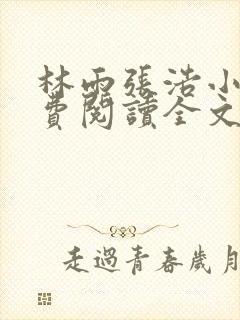 林雨張浩小
費閱讀全文
走過青春歲月